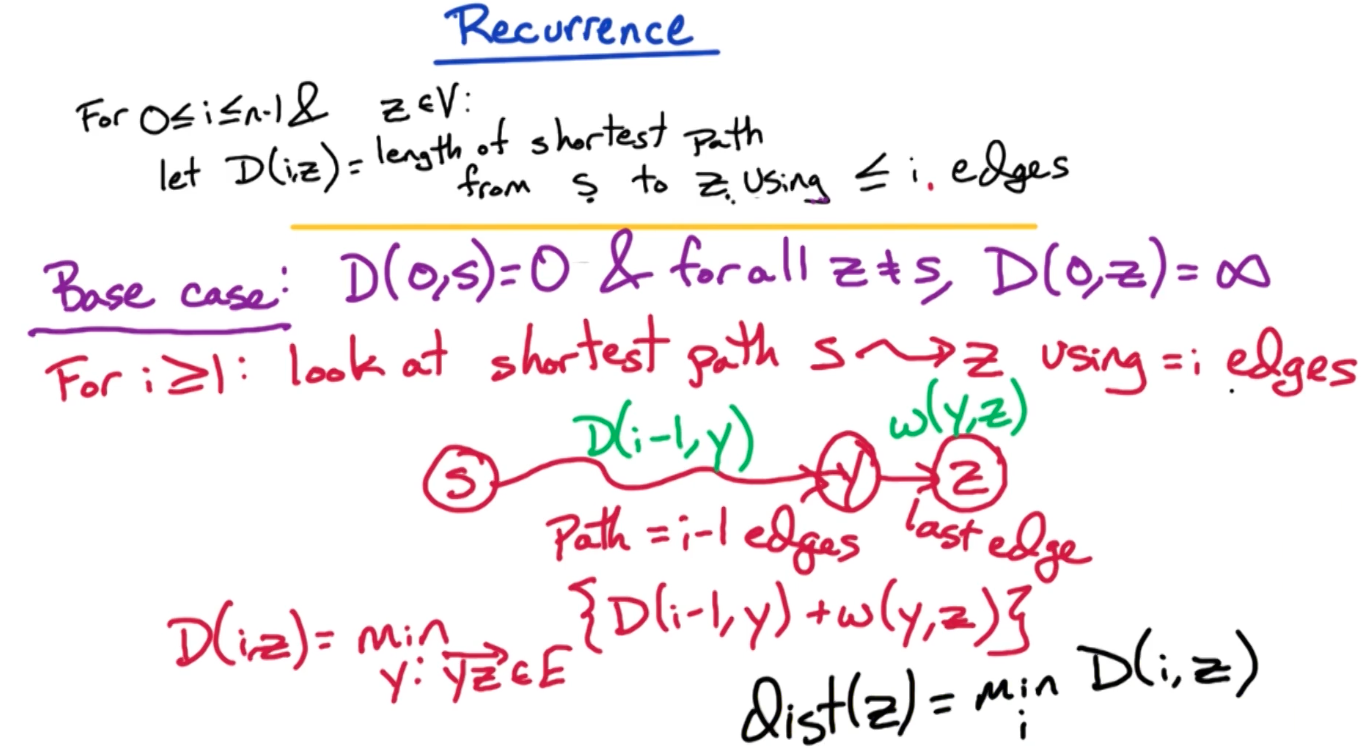 Recurrence
For 0≤i≤n-1 & z∈V:
let D(i,z) = length of shortest path
from s to z using ≤ i edges
Base case: D(0,s)=0 & for all z≠s, D(0,z)=∞
For i≥1: look at shortest path s⇝z using =i edges
D(i-1,y) w(y,z)
s y z
Path = i-1 edges last edge
D(i,z) = min {D(i-1,y) + w(y,z)}
y: yz∈E
Dist(z) = min D(i,z)
i